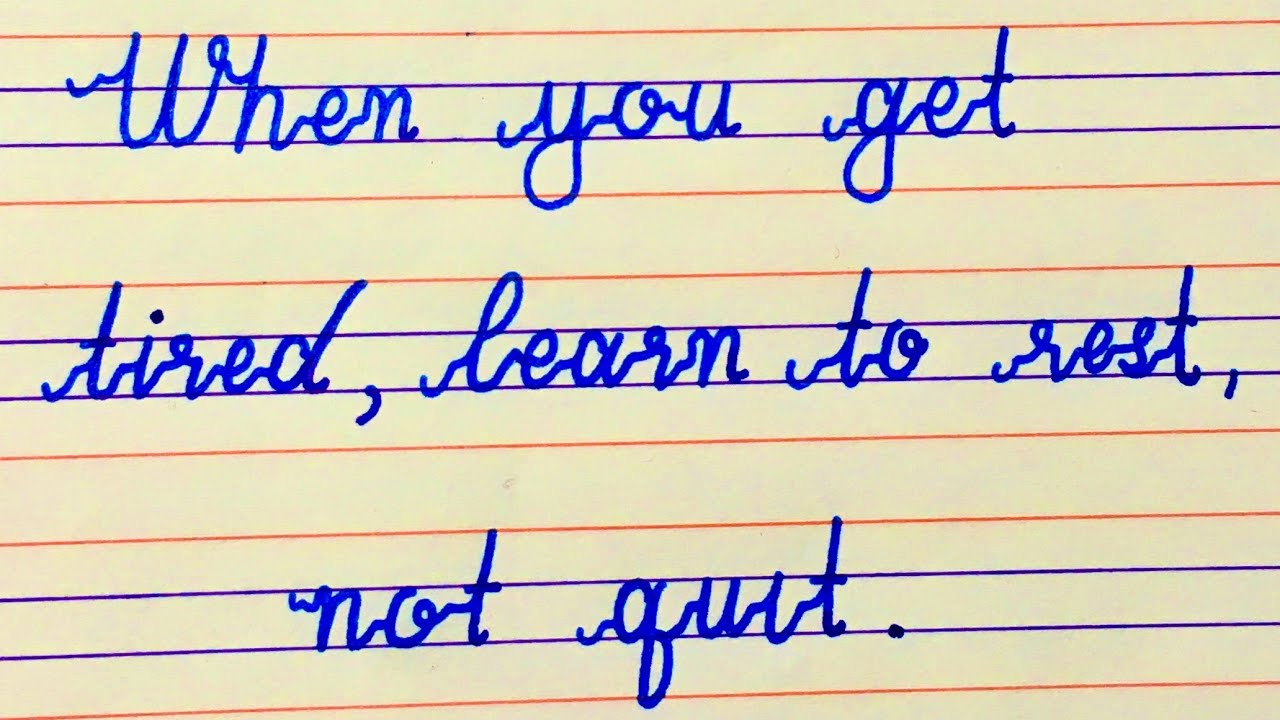 When you get
tired, learn to rest,
not quit.